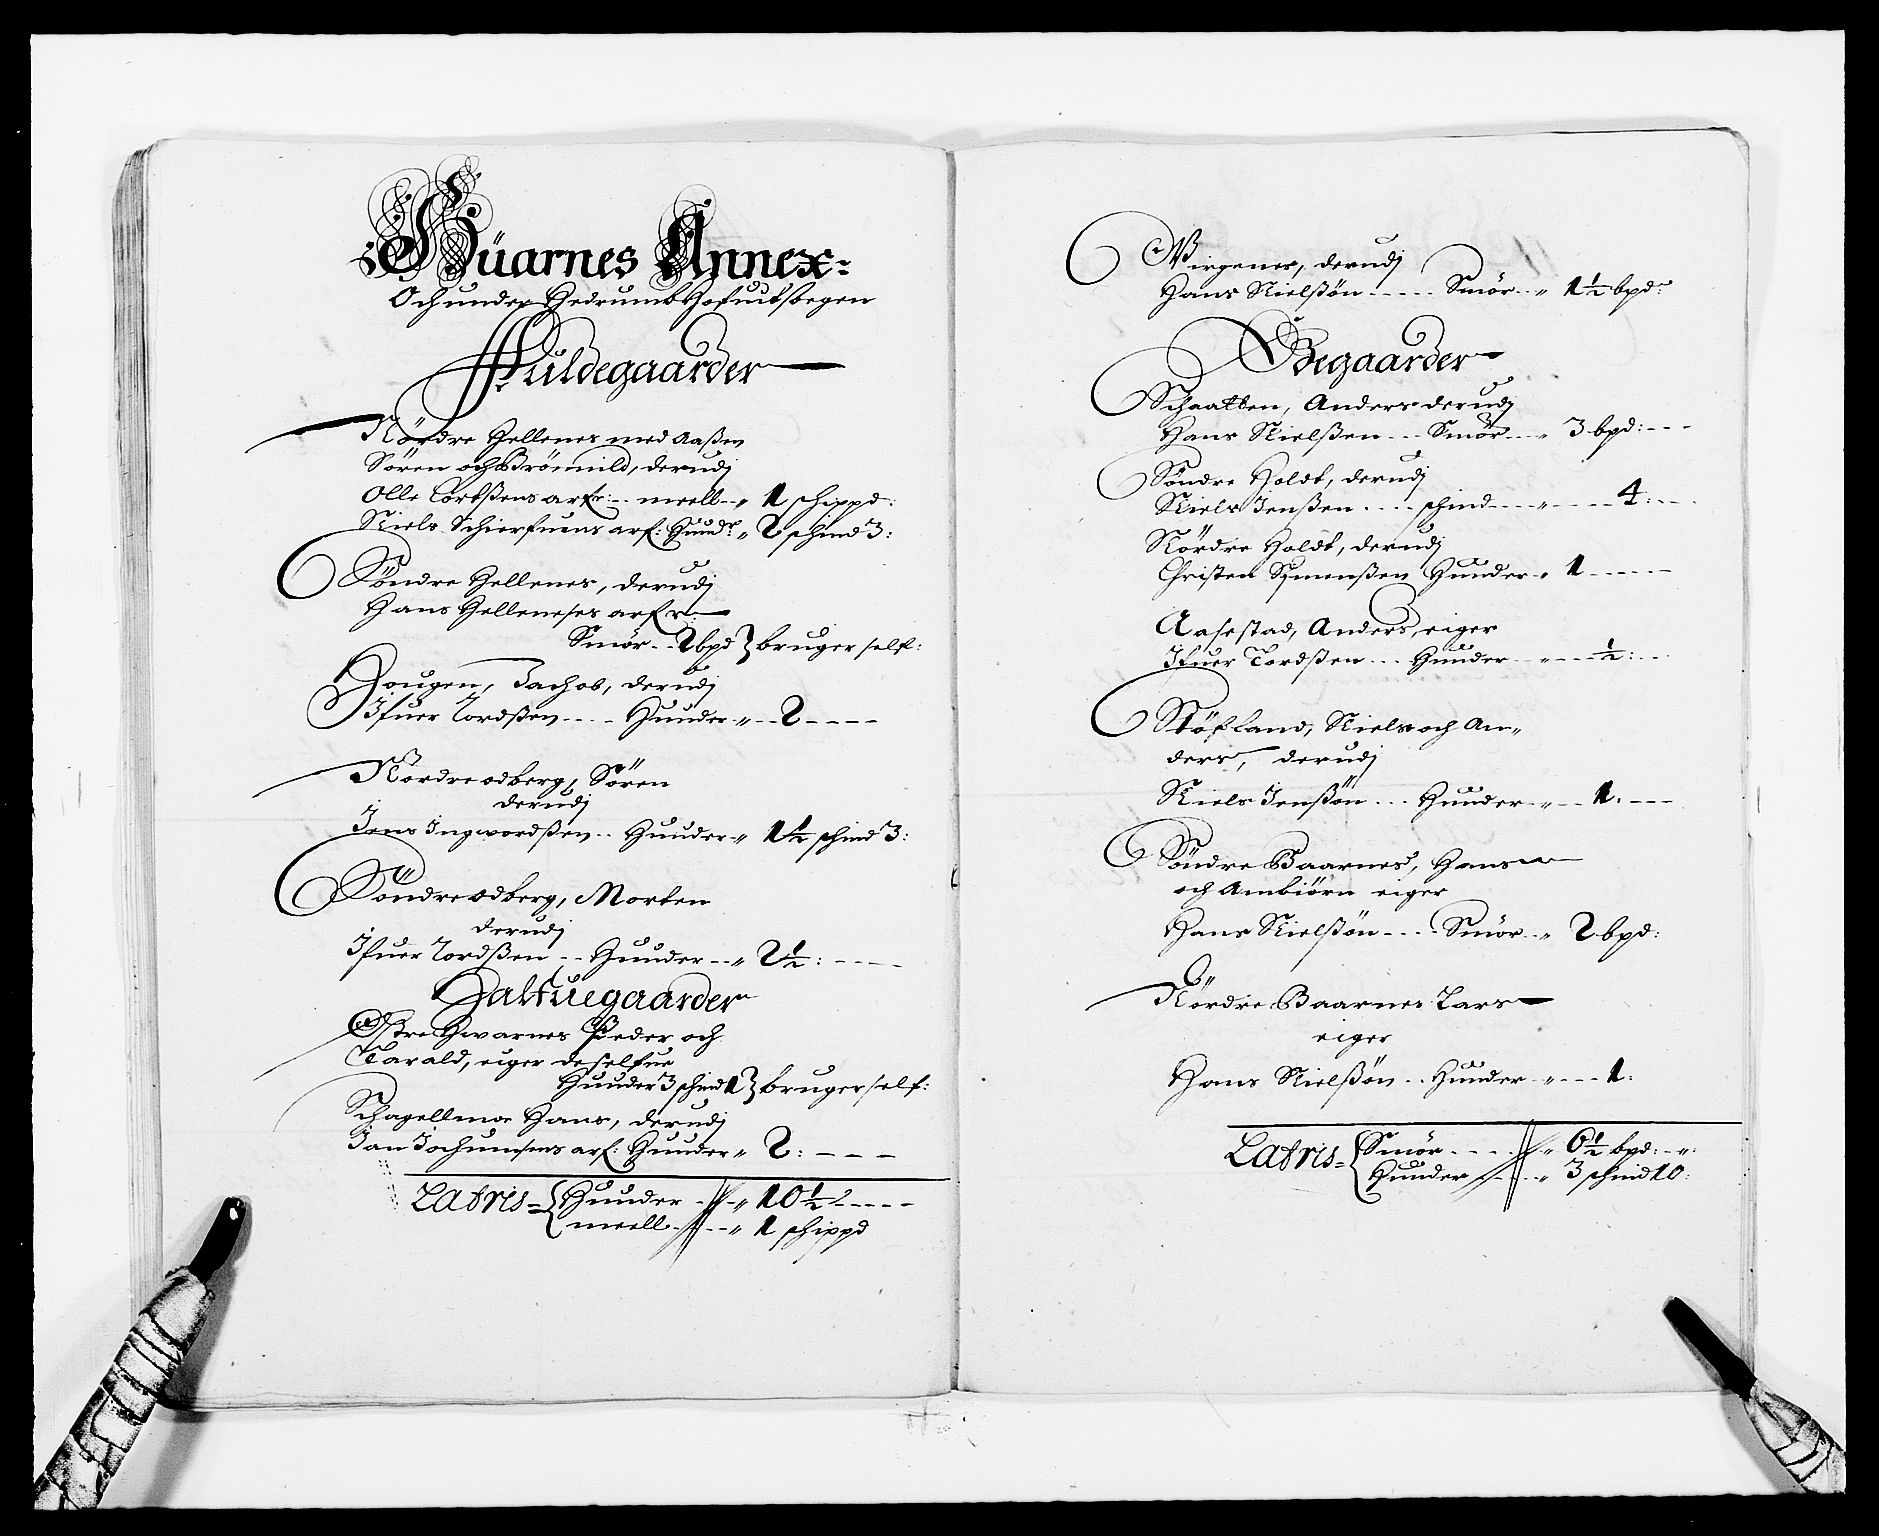 Hüarnes Annex:
Och under Hedrumb Hofuitsøegen
Fuldegaarder
Nördre Hellenes med Aaßen
Sören och Brönnild, derudj
Olle Tordßens arfr: meell 1 schippd:
Niels Schierfuens arf: Huudr 2 schind 3:
Söndre Hellenes, derudj
Hans Helleneses arfr:
Smör 2 bpd } bruger self:
Hougen, Jachob, derudj
Ifuer Tordßen Huuder 2
Nordre odberg, Sören
derudj
Jens Ingwordßen Huuder 1½ schind 3:
Söndre odberg, Morten
derudj
Ifuer Tordßen Huuder 2½:
Halfuegaarder
Østre Hwarnes Peder och
Harald, eiger deselfue
Huuder 3 schind 1 } bruger self:
Schagellnes Hans, derudj
Jan Jochumsens arf: Huuder 2:
Latris = { Huuder 10½
meell 1 schippd
Wirgenes, derudj
Hans Nielßön Smör 1½ bpd:
Ødegaarder
Schaatten, Anders derudj
Hans Nielßen Smör 3 bpd:
Söndre Holdt, derudj
Niels Jenßen schind 4:
Nördre Holdt, derudj
Christen Symenßen Huuder 1
Aasestad, Anders, eiger
Ifuer Tordßen Huuder ½:
Stöfland, Niels och An„
ders, derudj
Niels Jenßön Huuder 1:
Söndre Baarnes, Hans
och Ambiörn eiger
Hans Nielßön Smör 2 bpd:
Nördre Baarnes Lars
eiger
Hans Nielßön Huuder 1:
Latris = { Smör 6½ bpd:
Huuder 3 schind 10: